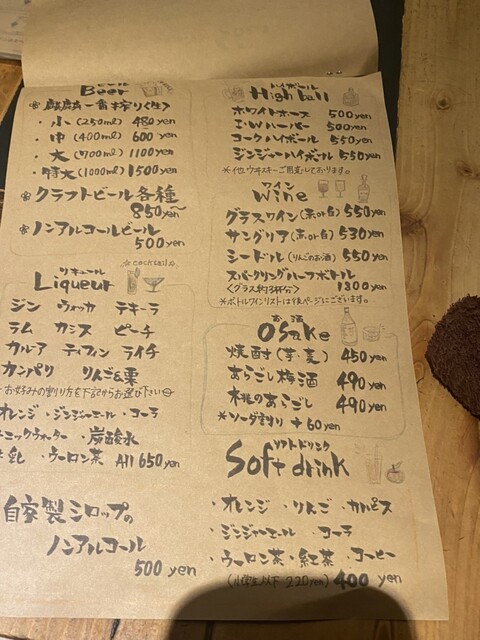 ビール
Beer
麒麟一番搾り<生>
・小(250ml) 480yen
・中(400ml) 600yen
・大(700ml) 1100yen
・特大(1000ml) 1500yen
クラフトビール各種
850yen~
ノンアルコールビール
500yen
リキュール
Liqueur
☆cocktail☆
ジン ウォッカ テキーラ
ラム カシス ピーチ
カルア ティフィン ライチ
カンパリ りんご&栗
お好みの割り方を下記からお選び下さい
オレンジ・ジンジャーエール・コーラ
ニックウォーター・炭酸水
乳・ウーロン茶 All 650yen
自家製シロップの
ノンアルコール
500 yen
ハイボール
High ball
ホワイトホース 500yen
I.Wハーパー 500yen
コークハイボール 550yen
ジンジャーハイボール 550yen
*他ウヰスキーご用意しております。
ワイン
Wine
グラスワイン(赤or白) 550yen
サングリア(赤or白) 530yen
シードル(りんごのお酒) 550yen
スパークリングハーフボトル
<グラス約3杯分> 1800yen
*ボトルワインリストは後ページにございます。
お酒
Osake
焼酎(芋・麦) 450yen
あらごし梅酒 490yen
桃のあらごし 490yen
*ソーダ割り +60yen
ソフトドリンク
Soft drink
・オレンジ・りんご・カルピス
・ジンジャーエール・コーラ
・ウーロン茶・紅茶・コーヒー
(小学生以下 220yen) 400 yen